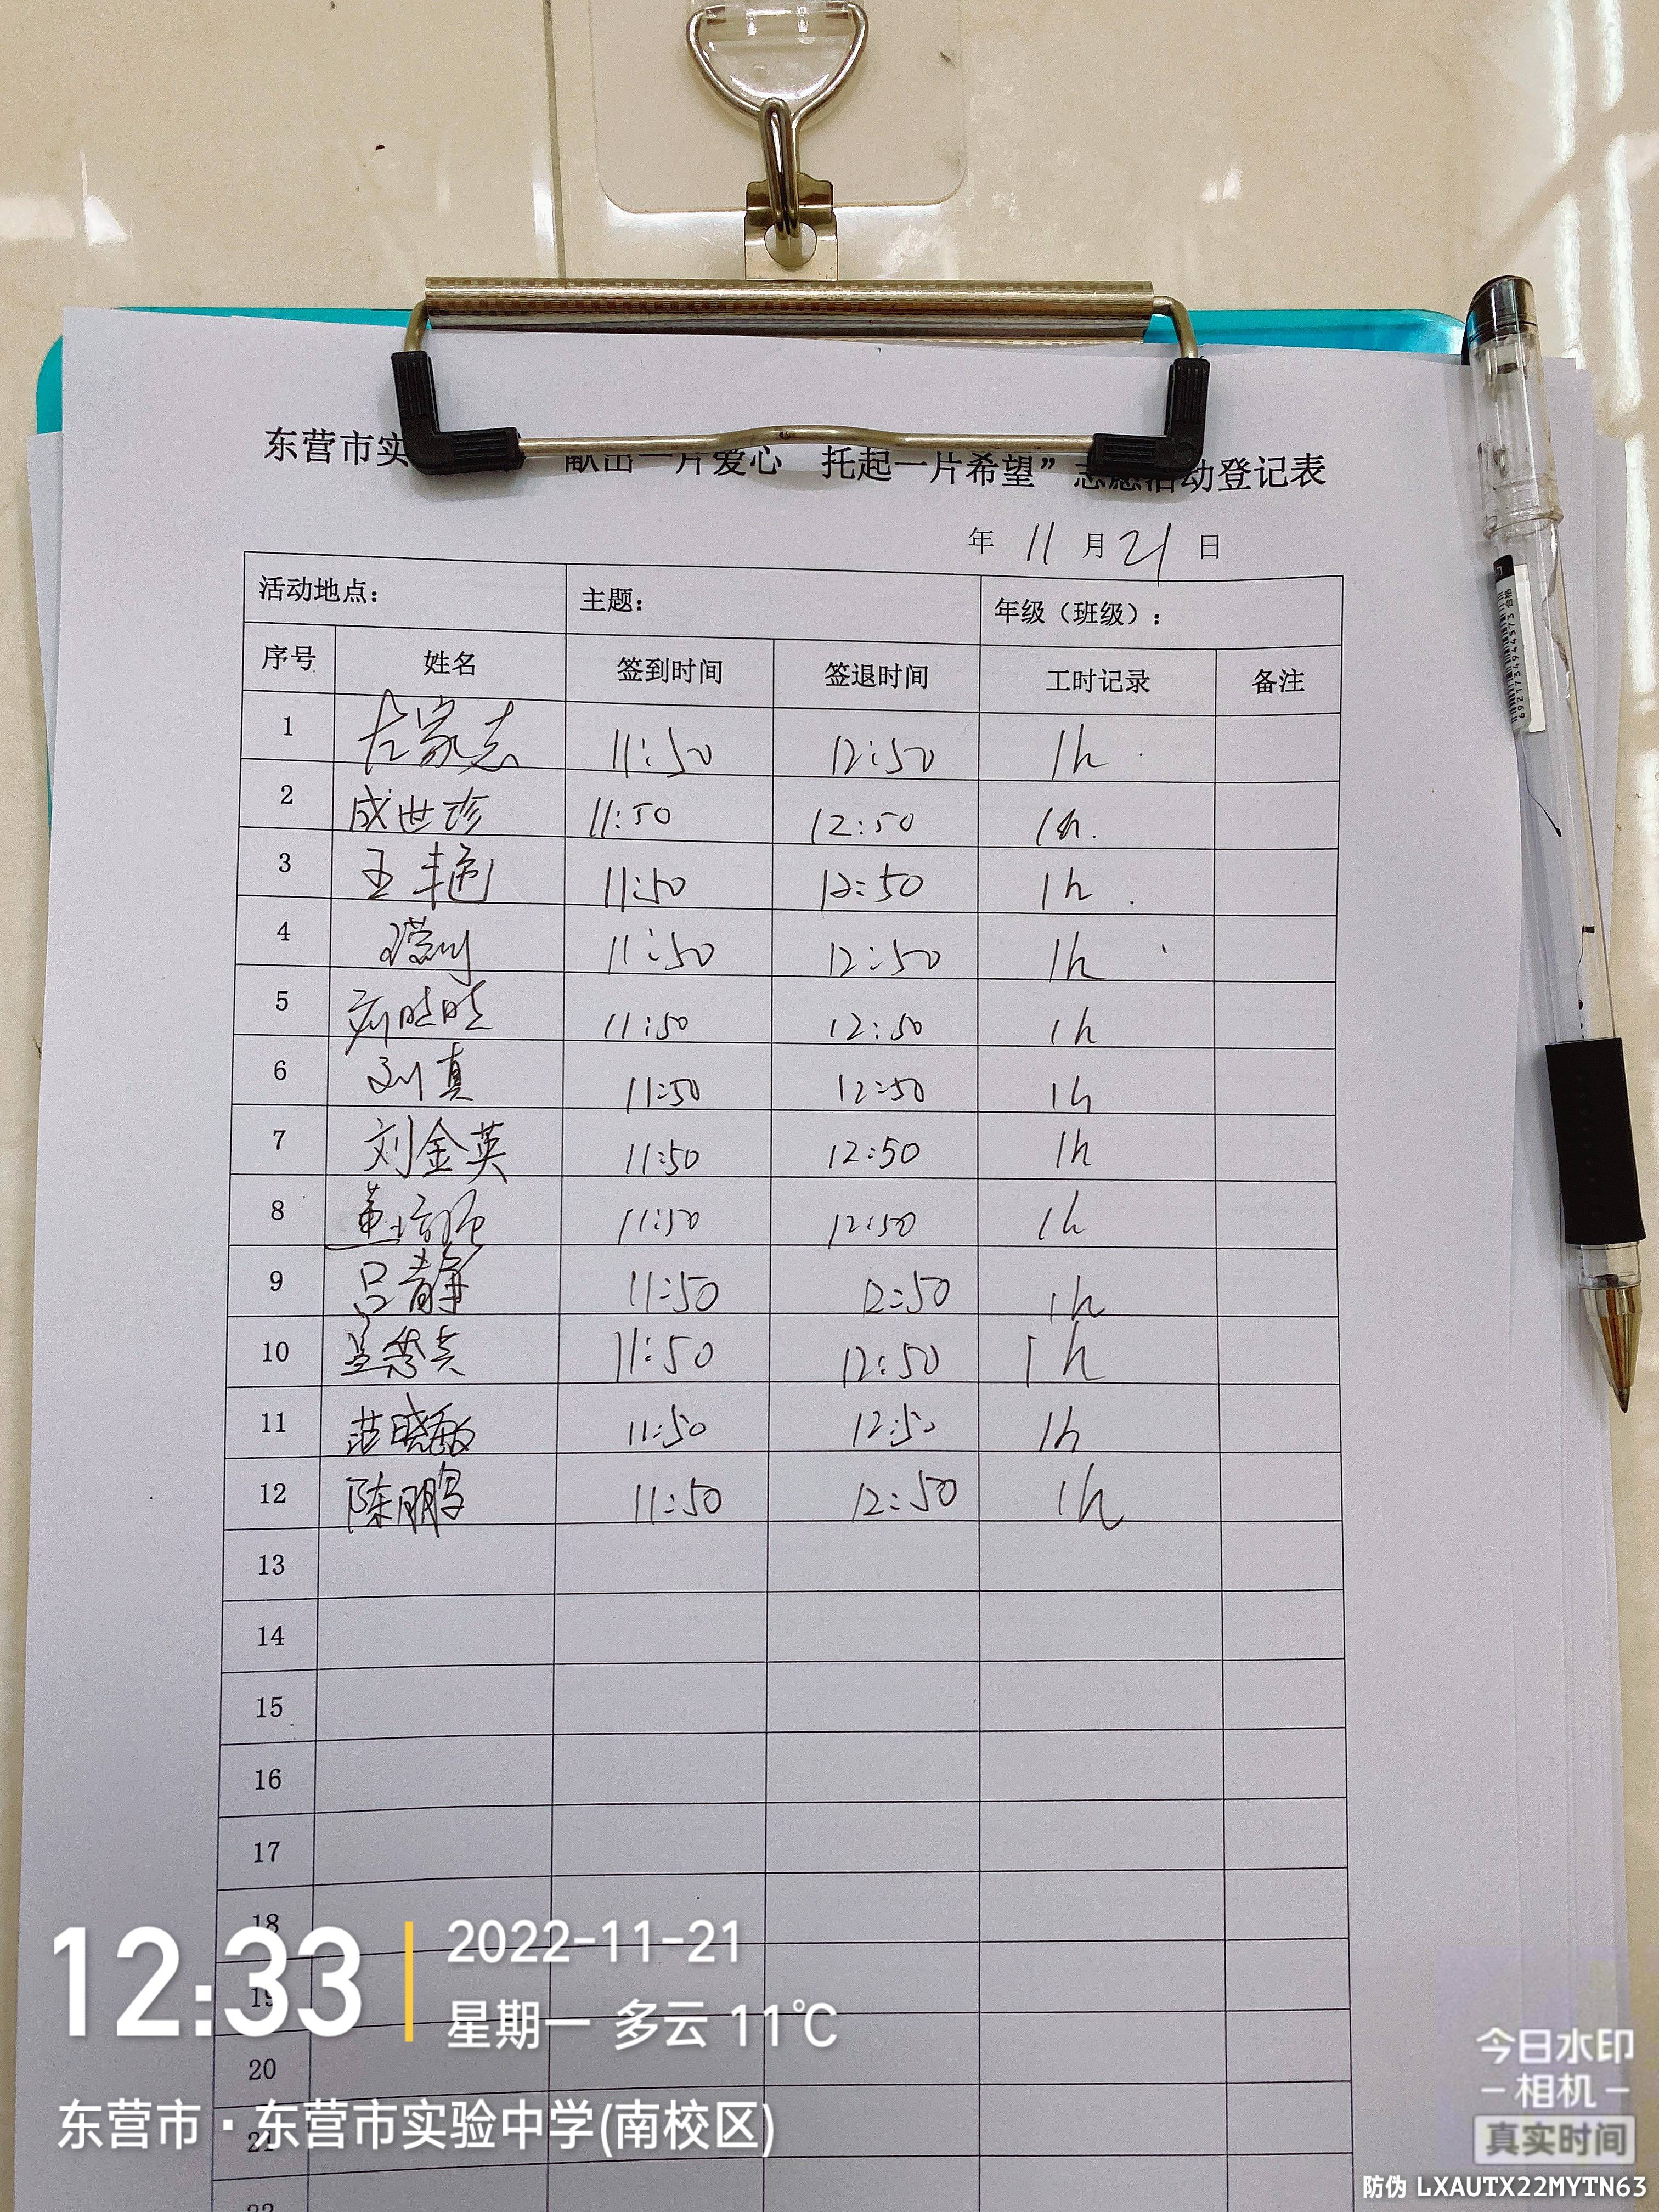 东营市实 献出一片爱心 托起一片希望”志愿活动登记表
年 11 月 21 日
活动地点： 主题： 年级（班级）：
序号 姓名 签到时间 签退时间 工时记录 备注
1 左家志 11:50 12:50 1h
2 成世珍 11:50 12:50 1h.
3 王艳 11:50 12:50 1h
4 11:50 12:50 1h
5 刘晓晓 11:50 12:50 1h
6 刘真 11:50 12:50 1h
7 刘金英 11:50 12:50 1h
8 11:50 12:50 1h
9 吕静 11:50 12:50 1h
10 11:50 12:50 1h
11 范晓敏 11:50 12:50 1h
12 陈鹏 11:50 12:50 1h
13
14
15
16
17
18
19
20
21
22
12:33
2022-11-21
星期一 多云 11℃
东营市·东营市实验中学(南校区)
今日水印
相机
真实时间
防伪 LXAUTX22MYTN63
6921734945735 合格